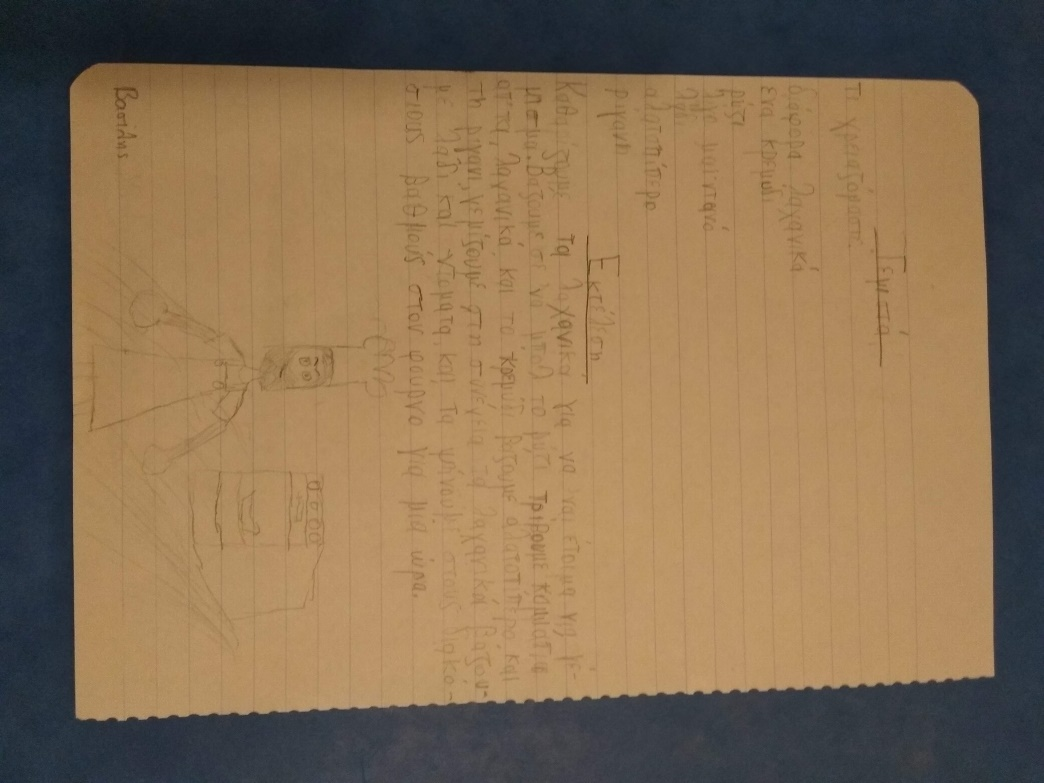 Γεμιστά
Τι χρειαζόμαστε
διάφορα λαχανικά
ένα κρεμύδι
ρύζι
λίγο μαϊντανό
λάδι
αλατοπίπερο
ρίγανη
Εκτέλεση
Καθαρίζουμε τα λαχανικά για να έναι έτοιμα για γέ-
μισμα. Βάζουμε σε να μπολ το ρύζι τρίβουμε κομμάτια
απ'τα λαχανικά και το κρεμύδι βάζουμε αλατοπίπερο και
τη ρίγανη, γεμίζουμε στη συνέχεια τα λαχανικά βάζου-
με λάδι και ντομάτα και τα ψήνουμε στους διακο-
σιους βαθμούς στον φουρνο για μία ώρα.
Βασίλης